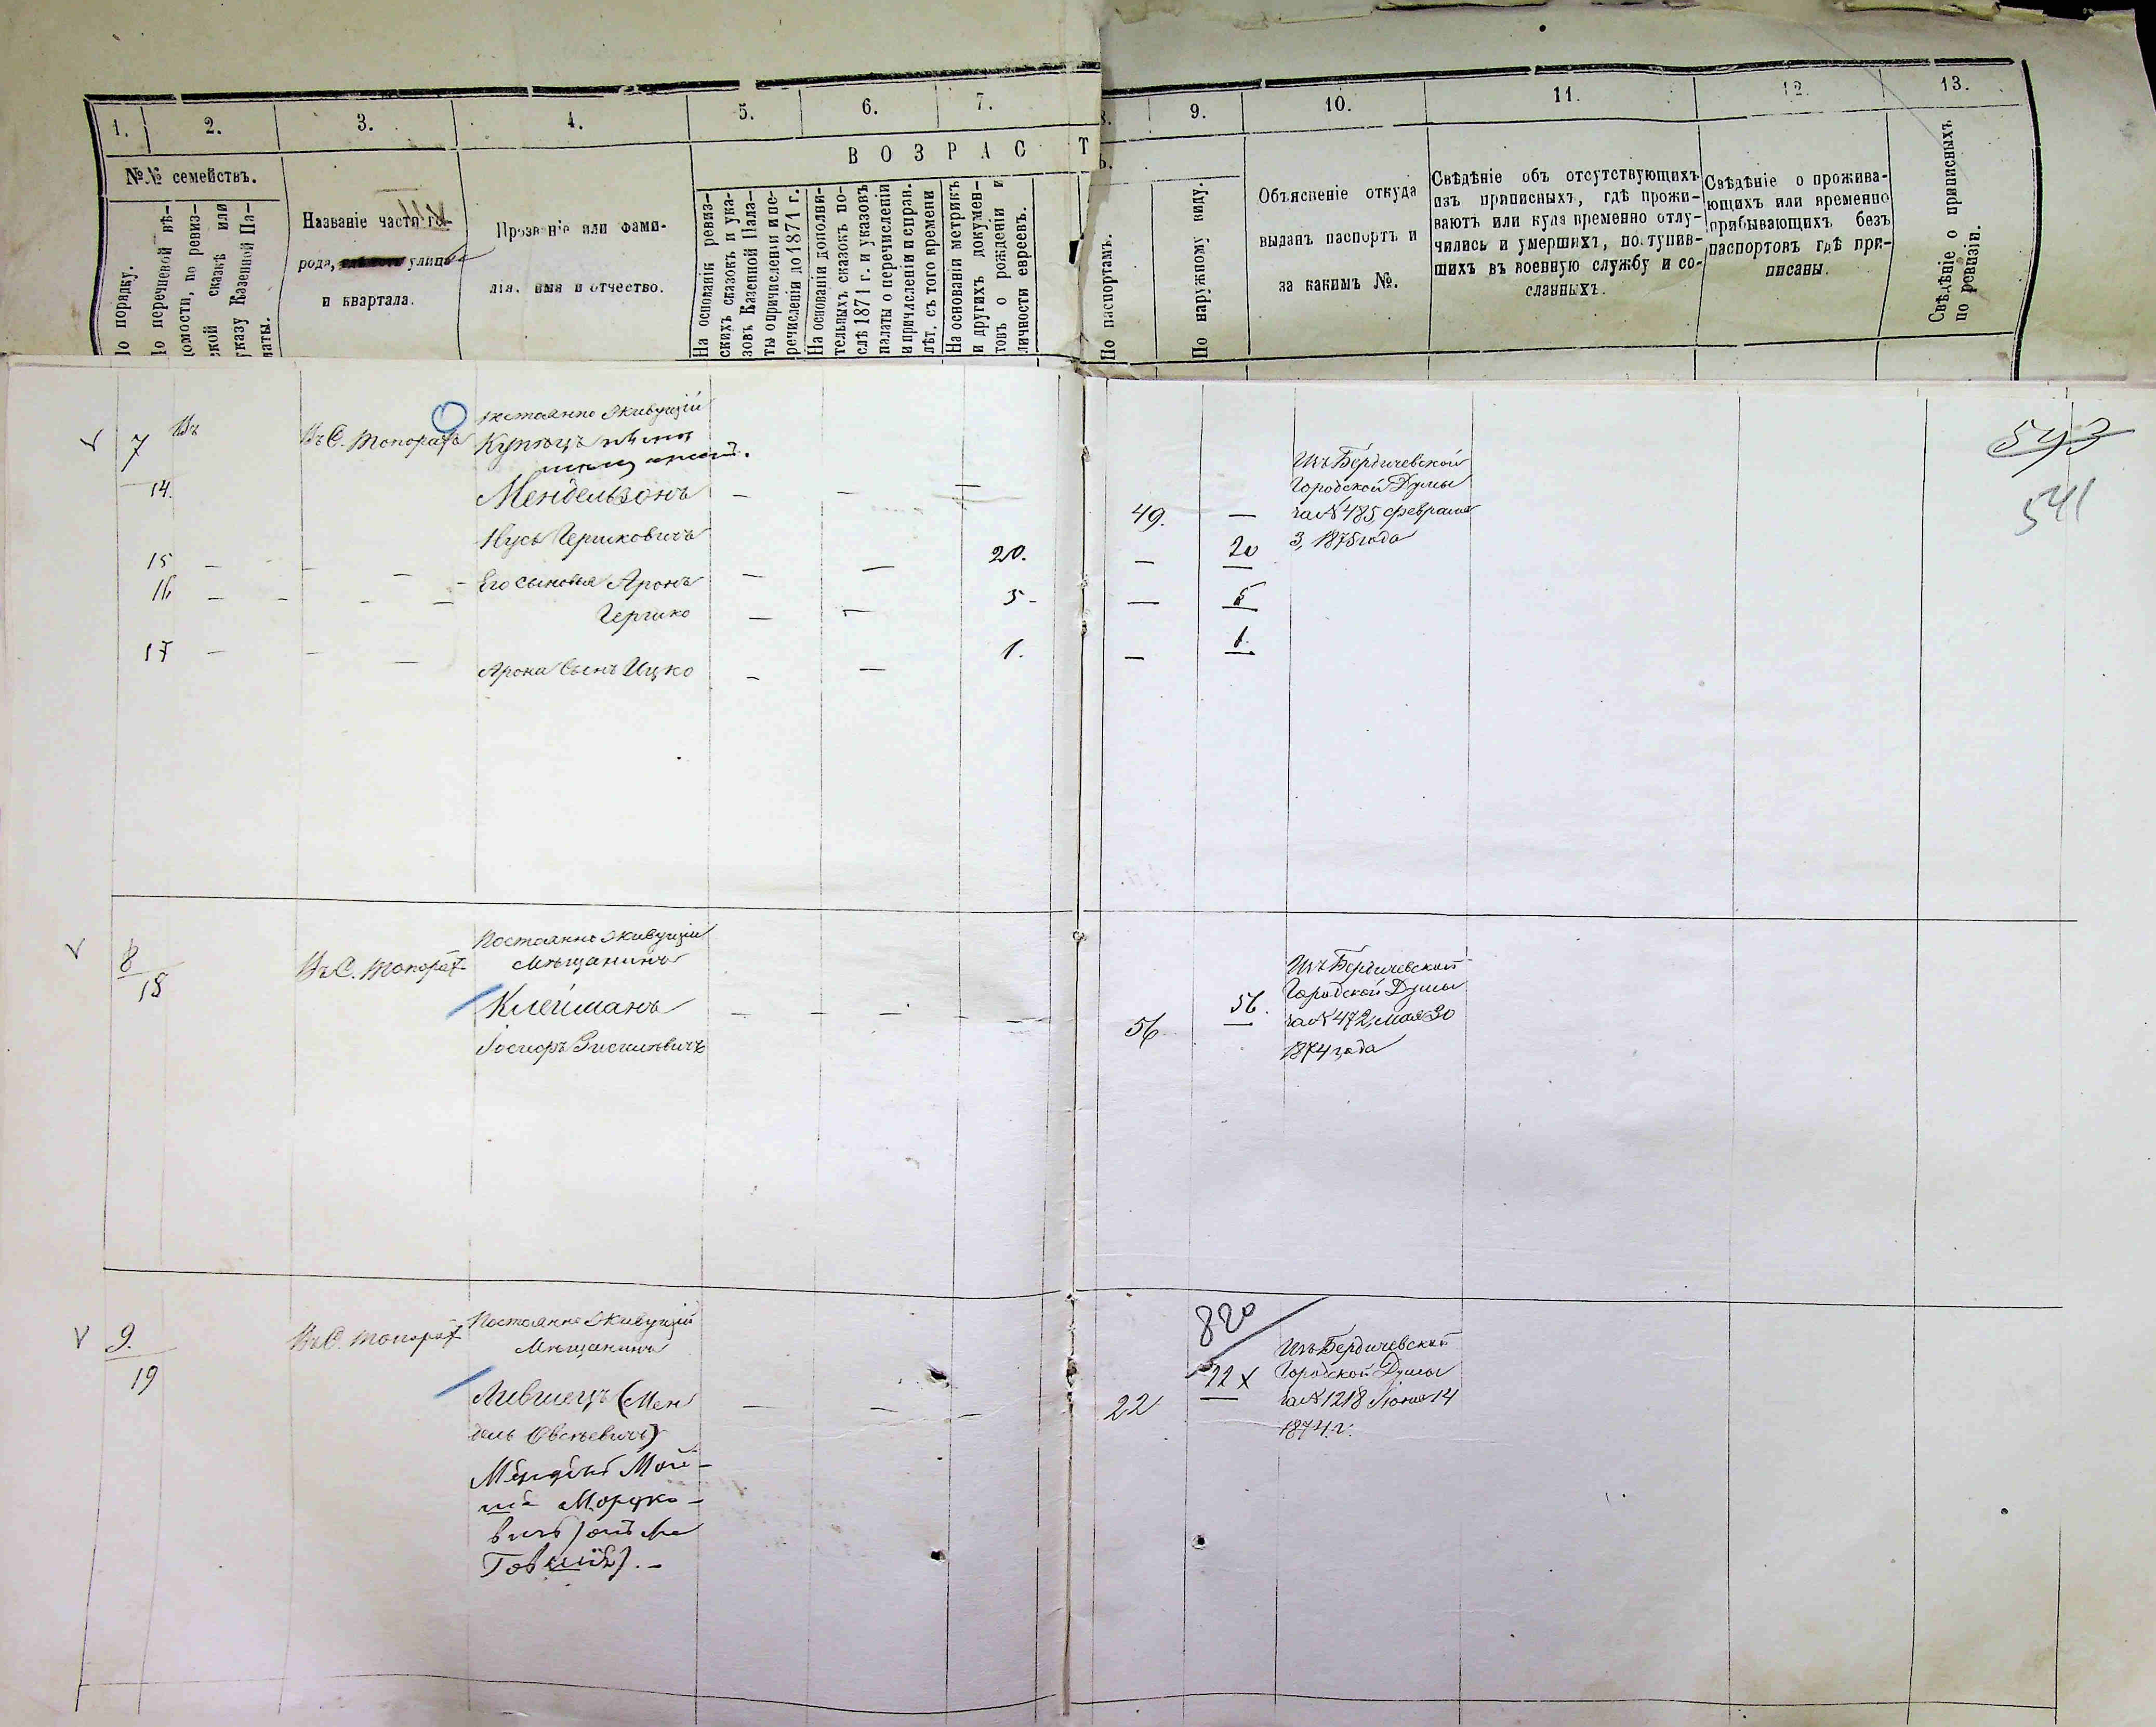 1.
2.
3.
4.
5.
6.
7.
9.
10.
11.
12.
13.
№№ семействъ.
По порядку.
По перечневой вѣ-
домости, по ревиз-
ской сказкѣ или
указу Казенной Па-
латы.
Названіе части го-
рода, улицы
и квартала.
Прозваніе или фами-
лія, имя и отчество.
ВОЗРАСТЪ.
На основаніи ревиз-
скихъ сказокъ и ука-
зовъ Казенной Пала-
ты о причисленіи и пе-
речисленіи до 1871 г.
На основаніи дополни-
тельныхъ сказокъ по-
слѣ 1871 г. и указовъ
палаты о перечисленіи
и причисленіи и справ.
лѣт. съ того времени
На основаніи метрикъ
и другихъ докумен-
товъ о рожденіи и
личности евреевъ.
По паспортамъ.
По наружному виду.
Объясненіе откуда
выданъ паспортъ и
за какимъ №.
Свѣдѣніе объ отсутствующихъ
изъ приписныхъ, гдѣ прожи-
ваютъ или куда временно отлу-
чились и умершихъ, поступив-
шихъ въ военную службу и со-
сланныхъ.
Свѣдѣніе о прожива-
ющихъ или временно
прибывающихъ безъ
паспортовъ гдѣ при-
писаны.
Свѣдѣніе о приписныхъ
по ревизіи.
543
541
7
14.
Въ С. Топорахъ
Постоянно живущій
Купецъ
Мендельзонъ — — —
Нусь Гершковичъ
49. —
Изъ Бердичевской
Городской Думы
за № 485, февраля
3, 1875 года
15 — — — Его сыновья Аронъ — — 20. — 20
16 — — — — Гершко — — 5 — — 5
17 — — — Арона Сынъ Ицко — — 1. — 1.
8
18
Въ С. Топорах
Постоянно живущій
Мѣщанинъ
Клейманъ — — — — —
Іосифъ
56
56.
Изъ Бердичевской
Городской Думы
за № 472, мая 30
1874 года
9.
19
Въ С. Топорах
Постоянно живущій
Мѣщанинъ
Лившецъ (Мен
дель Овсѣевичъ)
Мой-
Морцко-
вичъ
— — —
22
820
22 x
Изъ Бердичевской
Городской Думы
за № 1218 Іюня 14
1874 г.